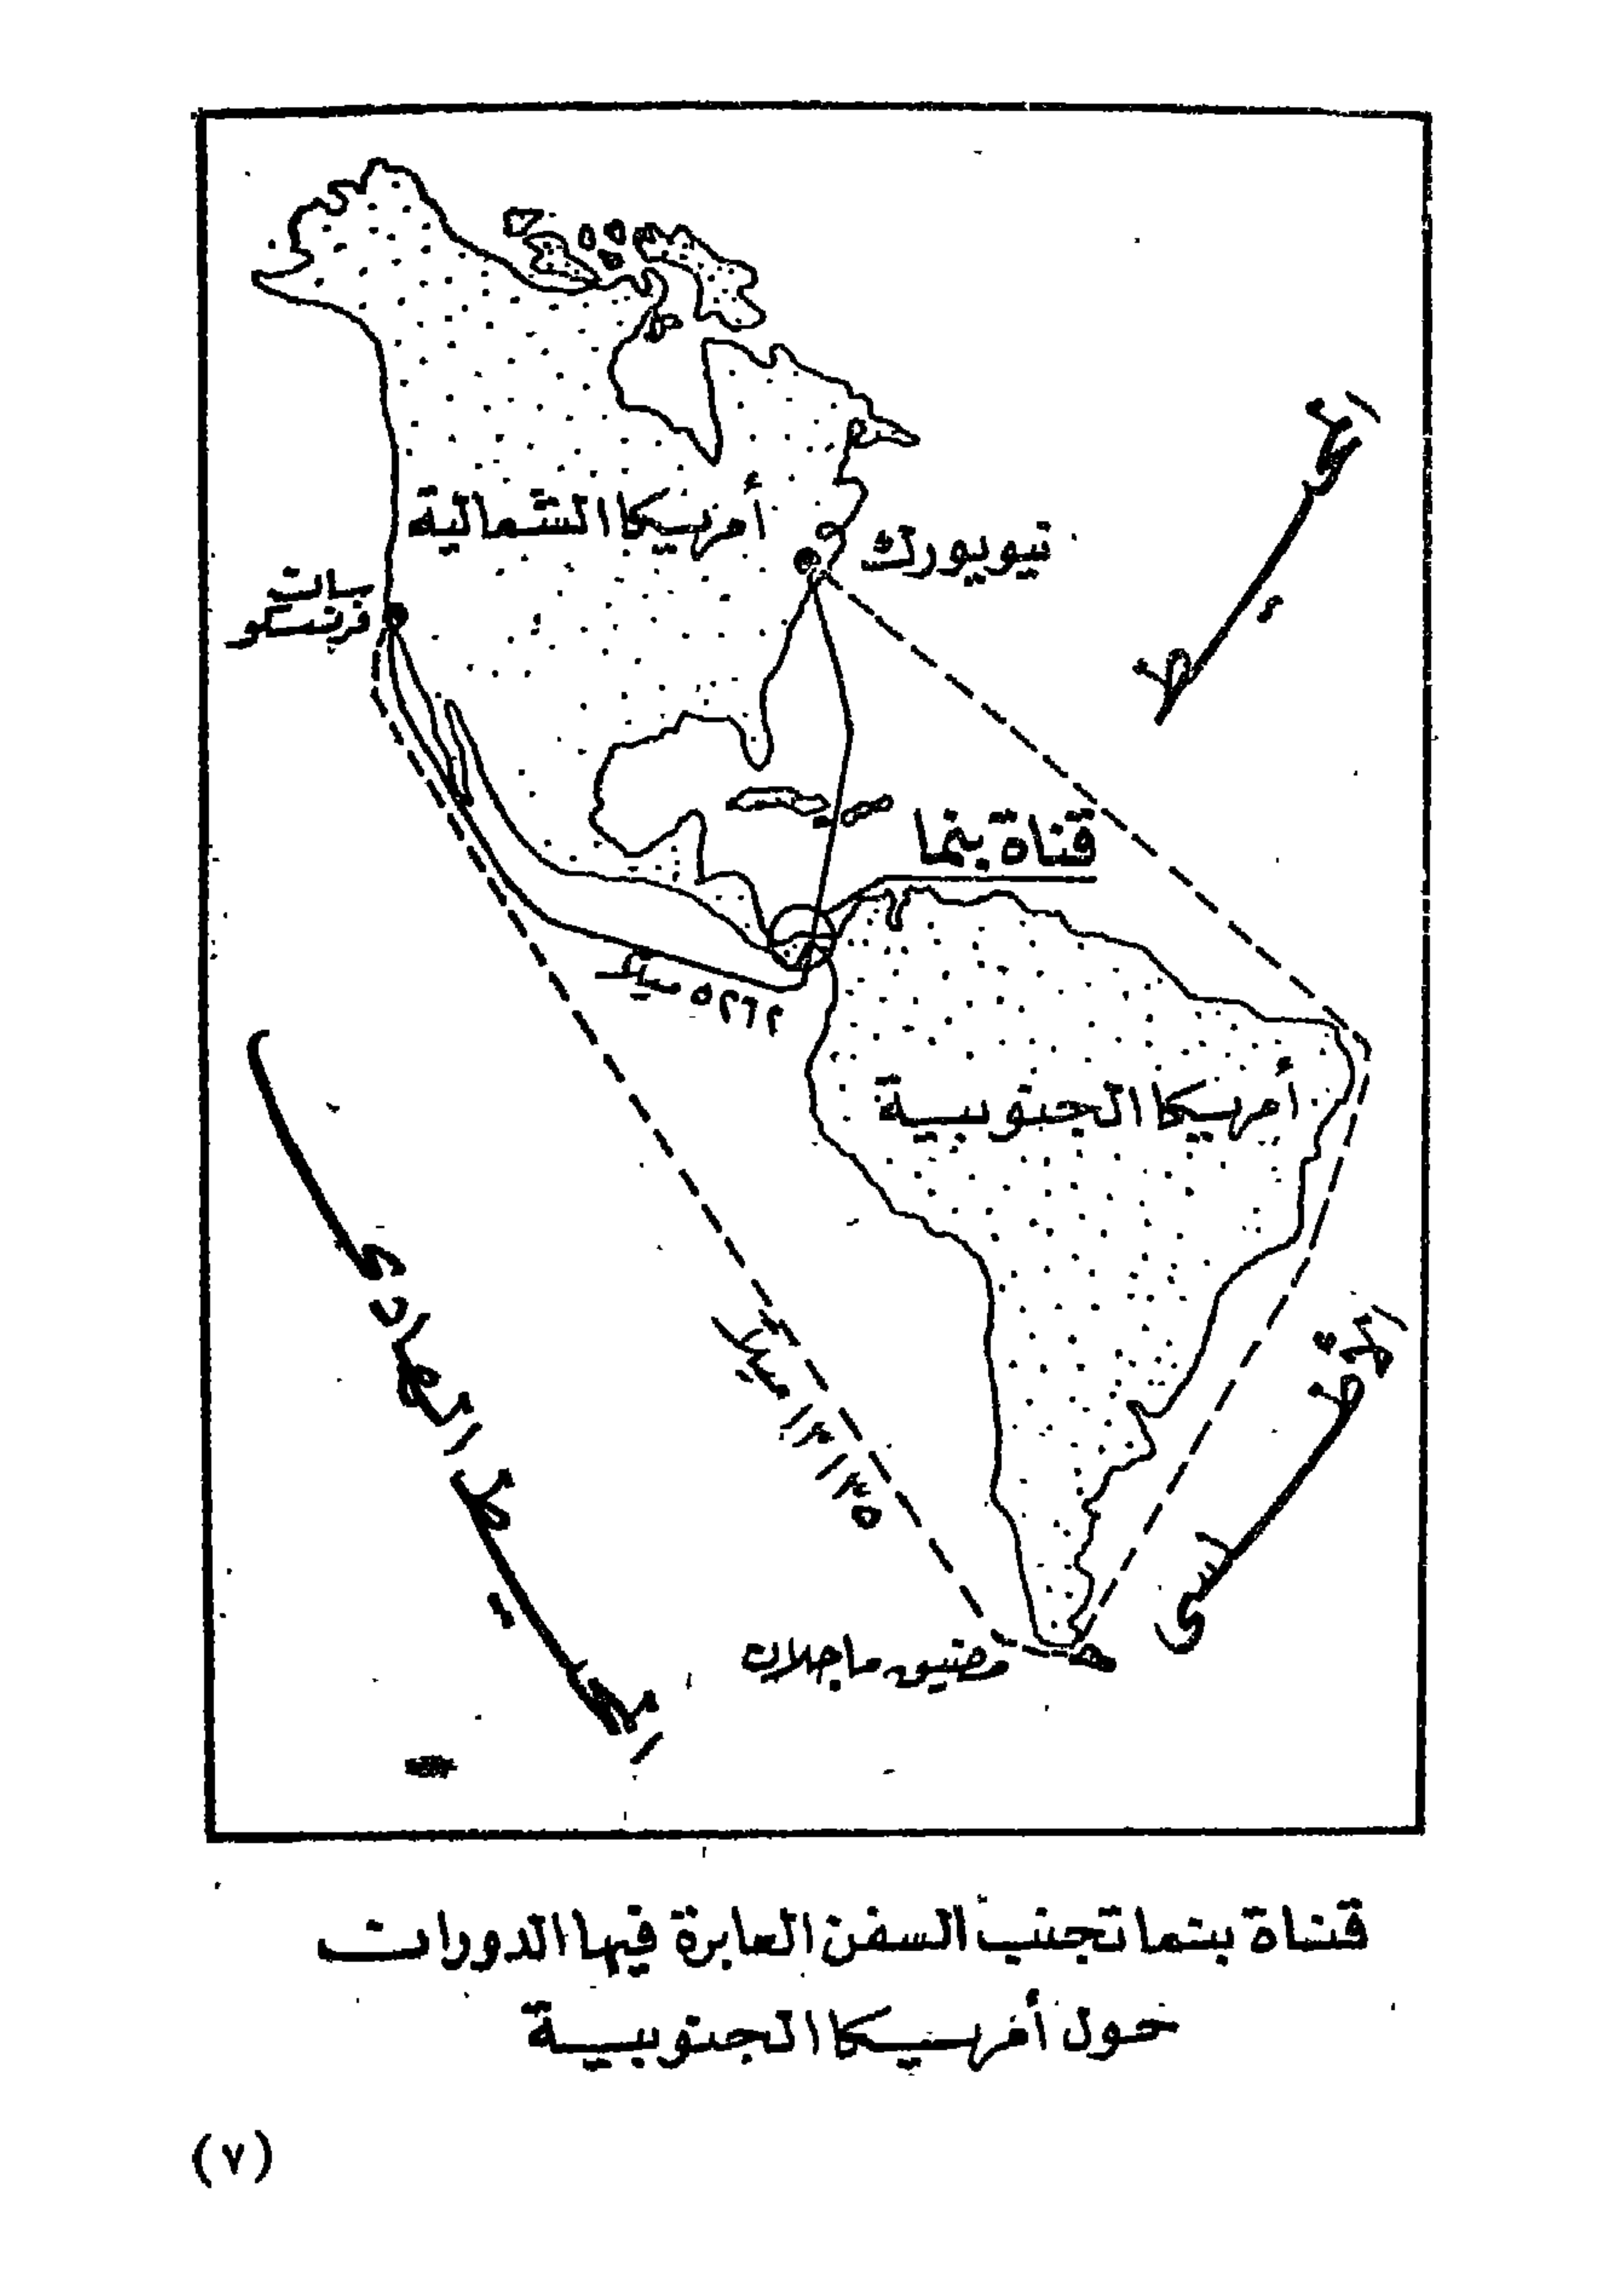 أمريكا الشمالية
نيويورك
سان
فرنسسكو
المحيط
قناة بنما
٥٢٦٢ ميلا
أمريكا الجنوبية
١٣١٣٥ ميلا
الأطلسى
المحيط الهادى
مضيق ماجلان
قناة بنما تجنب السفن العابرة فيها الدوران
حول أمريكا الجنوبية
(٧)